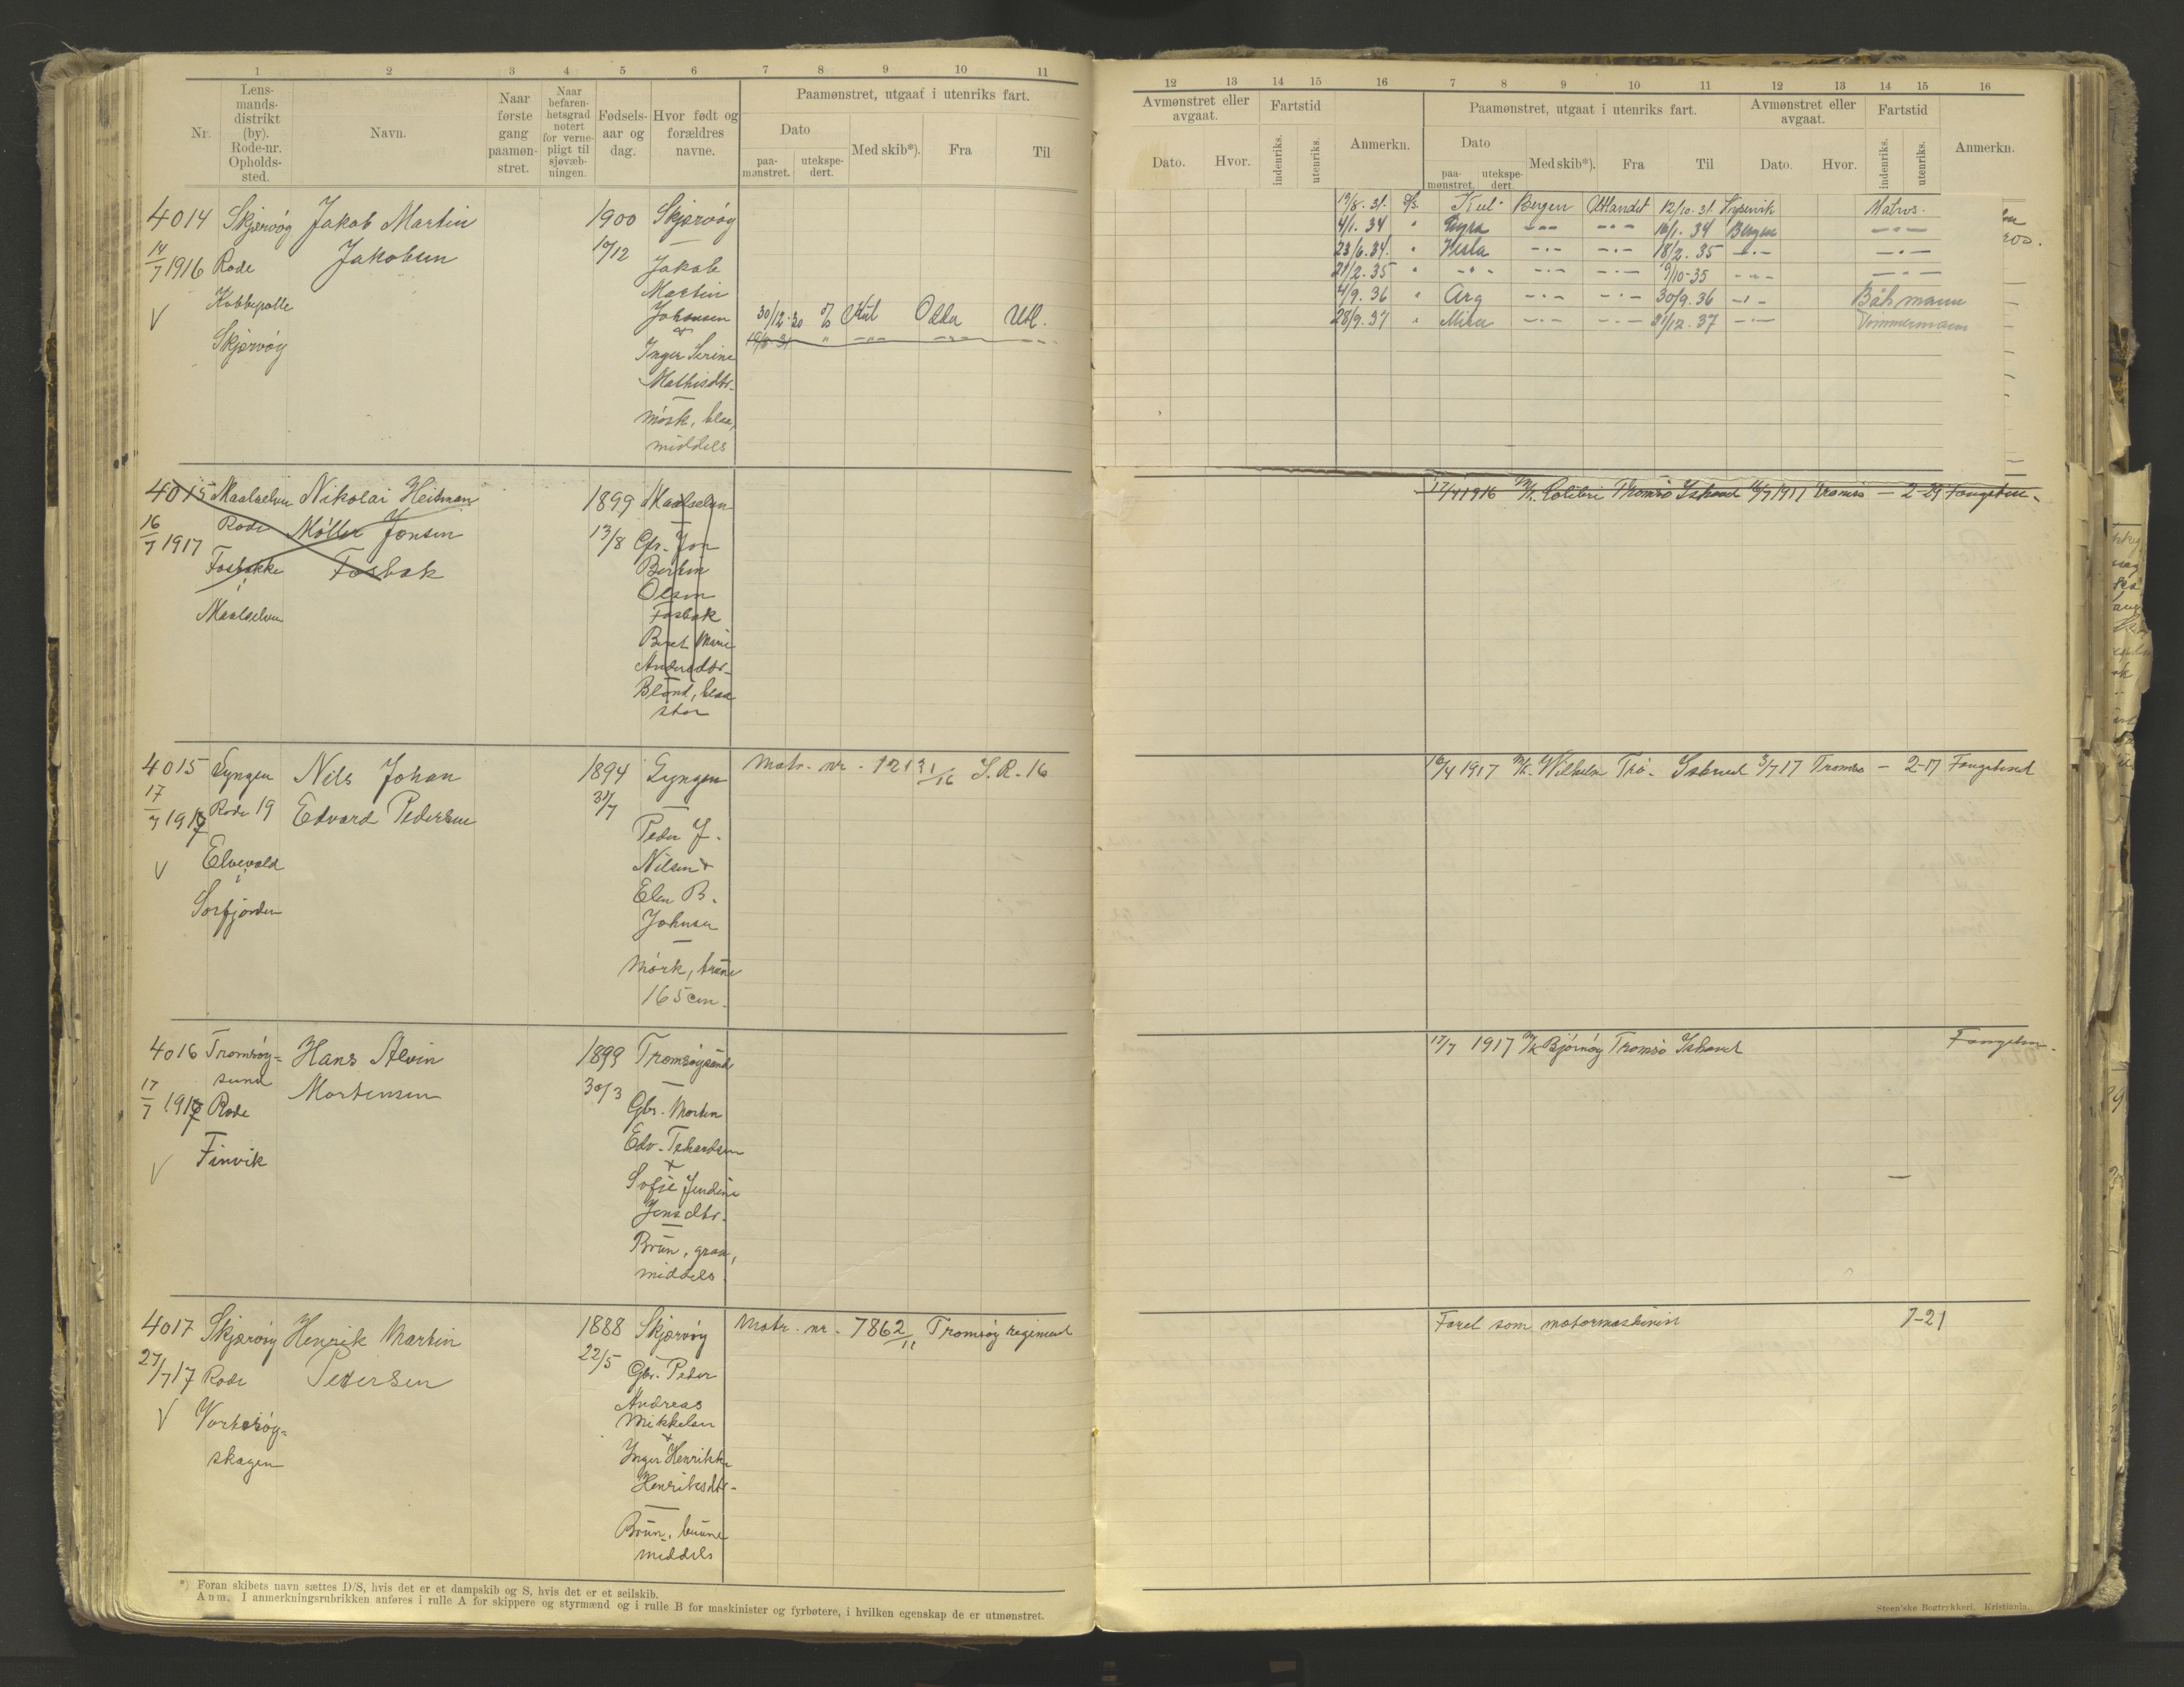 1 2 3 4 5 6 7 8 9 10 11
Nr.
Lens-
mands-
distrikt
(by).
Rode-nr.
Opholds-
sted.
Navn.
Naar
første
gang
paamøn-
stret.
Naar
befaren-
hetsgrad
notert
for verne-
pligt til
sjøvæb-
ningen.
Fødsels-
aar og
dag.
Hvor født og
forældres
navne.
Paamønstret, utgaat i utenriks fart.
Dato
paa-
mønstret.
utekspe-
dert.
Med skib*).
Fra
Til
4014 Skjærvøy Jakob Martin 1900 Skjærvøy
14/7 1916 Rode Jakobsen 10/12
Jakob
Martin
Johansen
+
Inger Serine
Mathisdtr.
Mørk, blaa,
middels
Skjærvøy
30/12-30 Odda Utl.
4015 Maalselven Nikolai Heitman 1899 Maalselven
16/7 1917 Rode Møller Jensen 13/8
Fosbakke Fosbak
Maalselven
Olsen
Fosbak
Beret Marie
Andersdtr.
Blond, blaa
stor
4015 Lyngen Nils Johan 1894 Lyngen Matr. nr. 121 31/16 S.R. 16
17/7 1917 Rode 19 Edvard Pedersen 31/7
Elvevold
Sørfjorden
Peder J.
Nilsen +
Elen B.
Johnsen
Mørk, brune
165 cm.
4016 Tromsøy- Hans Alvin 1899 Tromsøysund
sund Mortensen 30/3
17/7 1917 Rode
Finvik
Gbr. Morten
+
Sofie Jendine
Jensdtr.
Brun, graa,
middels
4017 Skjærvøy Henrik Martin 1888 Skjærvøy Matr. nr. 7862/11 Tromsøy regiment
27/7 17 Rode Petersen 22/5
Vorterøy-
skagen
Gbr. Peder
Andreas
Mikkelsen
+
Inger Henrikke
Henriksdtr.
Brun, brune
middels
*) Foran skibets navn sættes D/S, hvis det er et dampskib og S, hvis det er et seilskib.
Anm. I anmerkningsrubrikken anføres i rulle A for skippere og styrmænd og i rulle B for maskinister og fyrbøtere, i hvilken egenskap de er utmønstret.
12 13 14 15 16 7 8 9 10 11 12 13 14 15 16
Avmønstret eller
avgaat.
Dato.
Hvor.
Fartstid
indenriks.
utenriks.
Anmerkn.
Paamønstret, utgaat i utenriks fart.
Dato
paa-
mønstret.
utekspe-
dert.
Med skib*).
Fra
Til
Avmønstret eller
avgaat.
Dato.
Hvor.
Fartstid
indenriks.
utenriks.
Anmerkn.
19/8. 31. D/S. Bergen Utlandet 12/10. 31. Matros.
4/1. 34 " -"- -"- 16/1. 34 Bergen -"-
23/6. 34. " Vesla -"- -"- 18/2. 35 -"- -"-
21/2. 35 " -"- -"- -"- 9/10-35 -"- -"-
4/9. 36 " -"- -"- 30/9. 36 -"- Båtsmann
28/9. 37 " Mira -"- -"- 31/12. 37 -"- Tømmermann
17/4 1916 M/K. Colibri Tromsø Ishavet 16/7 1917 Tromsø - 2-29 Fangstm.
10/4 1917 M/K. Wilhelm Trø. Ishavet 3/7 17 Tromsø - 2-17 Fangstmd
17/7 1917 M/K Bjørnøy Tromsø Ishavet Fangstm.
Faret som motormaskinist 7-21
Steen'ske Bogtrykkeri. Kristiania.